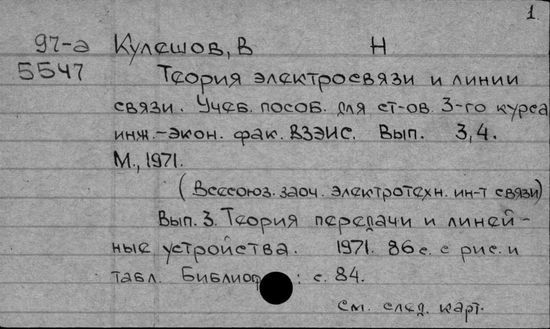 1.
97-а Кулешов, В Н
5547 Теория электросвязи и линии
связи. Учеб. пособ. для ст-ов. 3-го курса
инж.-экон. фак. ВЗЭИС. Вып. 3,4.
М., 1971.
(Всесоюз. заоч. электротехн. ин-т связи)
Вып. 3. Теория передачи и линей-
ные устройства. 1971. 86 с. с рис. и
табл. Библиогр : с. 84.
см. след. карт.